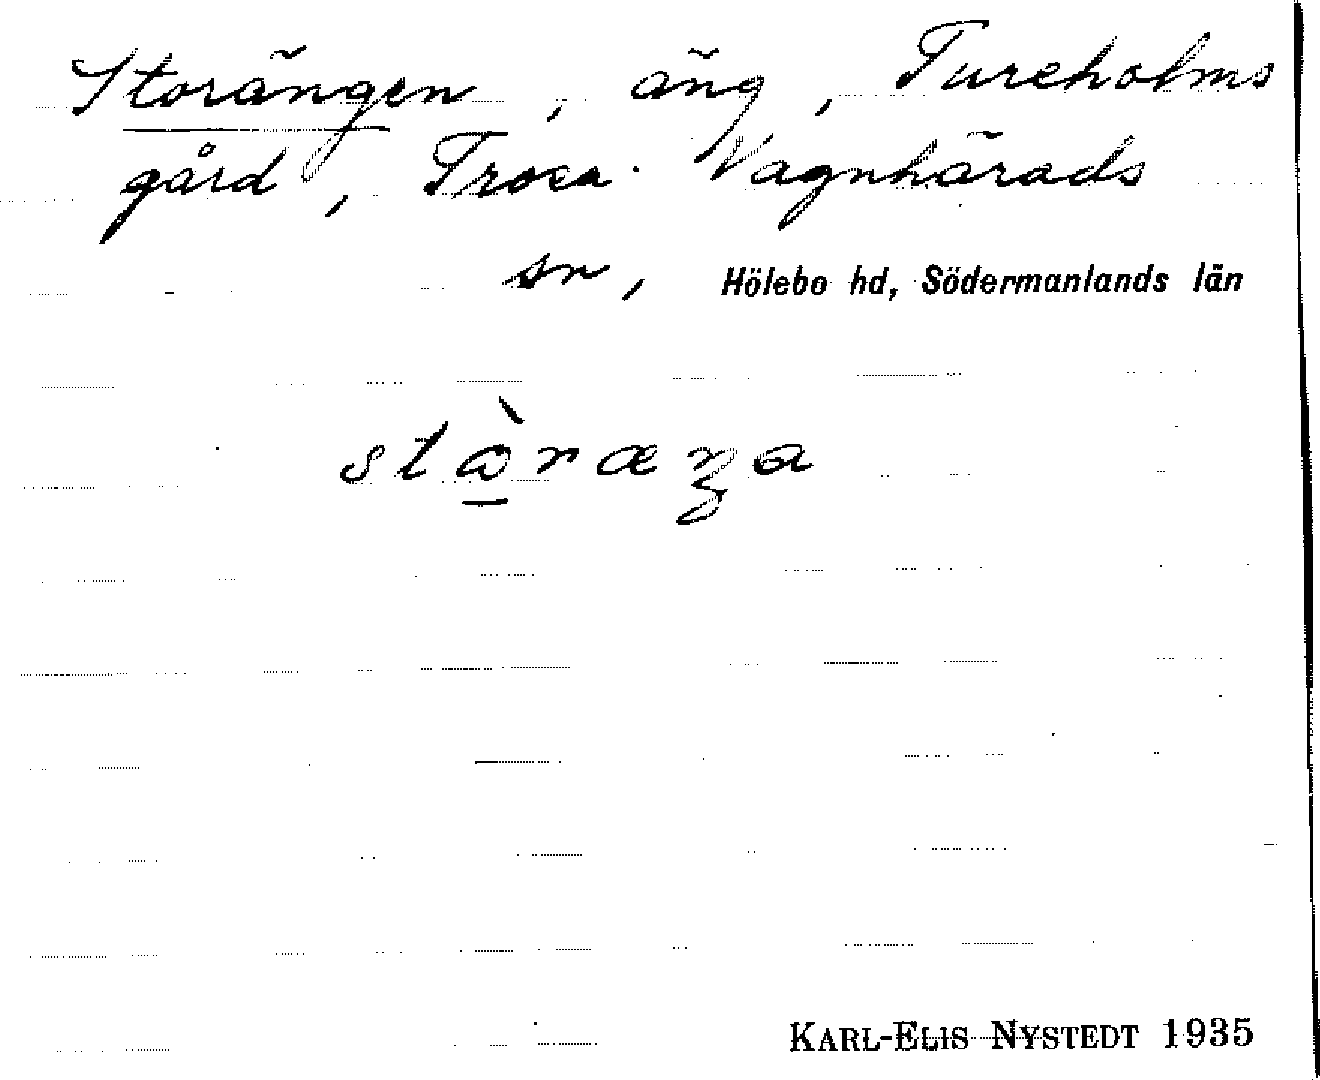 Storängen, äng, Tureholms
gård, Trosa-Vagnhärads
sn, Hölebo hd, Södermanlands län
KARL-ELIS NYSTEDT 1935